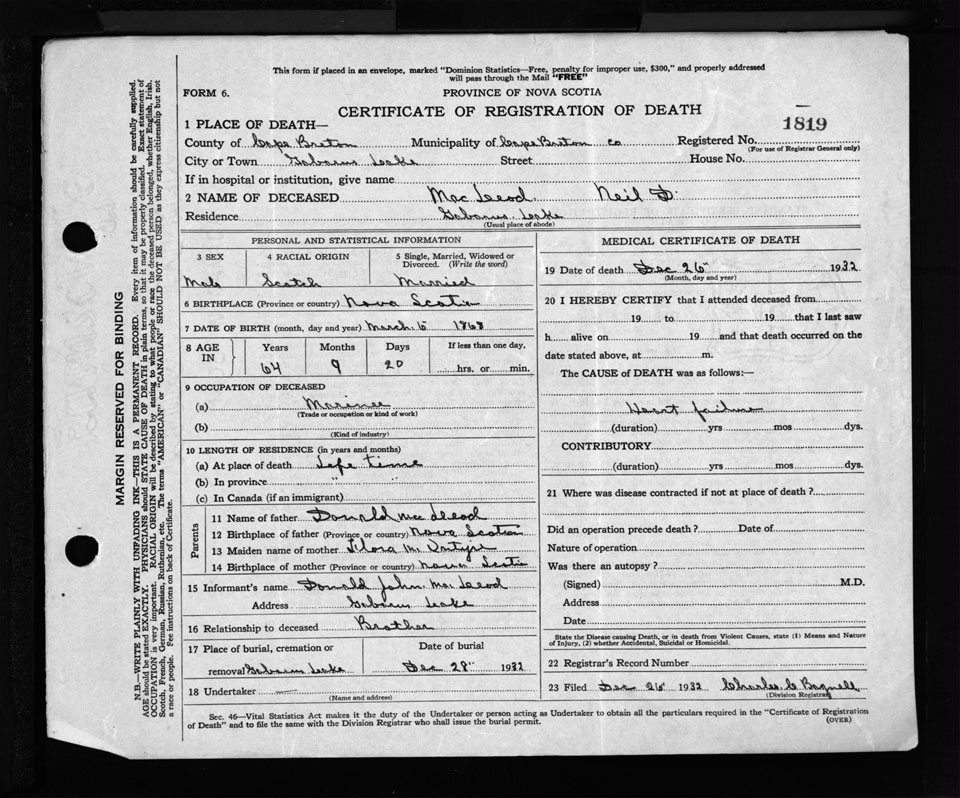 This form if placed in an envelope, marked "Dominion Statistics—Free, penalty for improper use, $300," and properly addressed
will pass through the Mail "FREE"
FORM 6. PROVINCE OF NOVA SCOTIA
CERTIFICATE OF REGISTRATION OF DEATH
1819
1 PLACE OF DEATH—
County of Cape Breton Municipality of Cape Breton co Registered No.
(For use of Registrar General only)
City or Town Gabarus Lake Street House No.
If in hospital or institution, give name
2 NAME OF DECEASED Mac Leod. Neil D.
Residence Gabarus Lake
(Usual place of abode)
PERSONAL AND STATISTICAL INFORMATION
3 SEX 4 RACIAL ORIGIN 5 Single, Married, Widowed or
Divorced. (Write the word)
Male Scotch Married
6 BIRTHPLACE (Province or country) Nova Scotia
7 DATE OF BIRTH (month, day and year) March 6 1868
8 AGE IN Years Months Days If less than one day,
64 9 20 hrs. or min.
9 OCCUPATION OF DECEASED
(a) Marinee
(Trade or occupation or kind of work)
(b)
(Kind of industry)
10 LENGTH OF RESIDENCE (in years and months)
(a) At place of death Life time
(b) In province " "
(c) In Canada (if an immigrant)
Parents
11 Name of father Donald Mc Leod
12 Birthplace of father (Province or country) Nova Scotia
13 Maiden name of mother Flora Mc Intyre
14 Birthplace of mother (Province or country) Nova Scotia
15 Informant's name Donald John Mac Leod
Address Gabarus Lake
16 Relationship to deceased Brother
17 Place of burial, cremation or Date of burial
removal Gabarus Lake Dec 28" 1932
18 Undertaker
(Name and address)
MEDICAL CERTIFICATE OF DEATH
19 Date of death Dec 26" 1932
(Month, day and year)
20 I HEREBY CERTIFY that I attended deceased from
19 to 19 that I last saw
h alive on 19 and that death occurred on the
date stated above, at m.
The CAUSE of DEATH was as follows:—
Heart failure
(duration) yrs mos dys.
CONTRIBUTORY
(duration) yrs mos dys.
21 Where was disease contracted if not at place of death?
Did an operation precede death? Date of
Nature of operation
Was there an autopsy?
(Signed) M.D.
Address
Date
State the Disease causing Death, or in death from Violent Causes, state (1) Means and Nature
of Injury, (2) whether Accidental, Suicidal or Homicidal.
22 Registrar's Record Number
23 Filed Dec 26 1932 Charles C Bagnell
(Division Registrar)
Sec. 46—Vital Statistics Act makes it the duty of the Undertaker or person acting as Undertaker to obtain all the particulars required in the "Certificate of Registration
of Death" and to file the same with the Division Registrar who shall issue the burial permit.
(OVER)
MARGIN RESERVED FOR BINDING
N.B.—WRITE PLAINLY WITH UNFADING INK—THIS IS A PERMANENT RECORD. Every item of information should be carefully supplied.
AGE should be stated EXACTLY. PHYSICIANS should STATE CAUSE OF DEATH in plain terms, so that it may be properly classified. Exact statement of
OCCUPATION is very important. RACIAL ORIGIN will be described by stating to what people or race the deceased person belonged, whether English, Irish,
Scotch, French, German, Russian, Ruthenian, etc. The terms "AMERICAN" or "CANADIAN" SHOULD NOT BE USED as they express citizenship but not
a race or people. Fee instructions on back of Certificate.